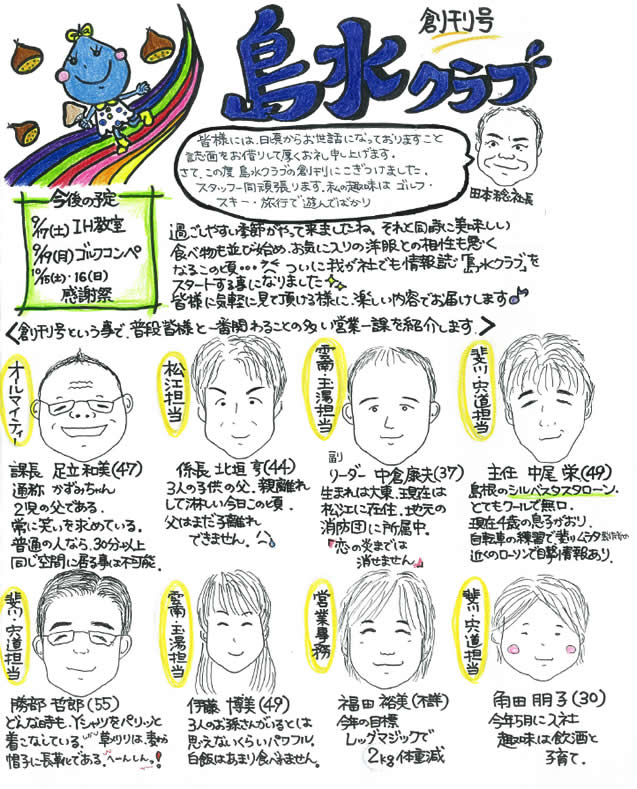 創刊号
島水クラブ
皆様には、日頃からお世話になっておりますこと
誌面をお借りして厚くお礼申し上げます。
さて、この度島水クラブの創刊にこぎつけました。
スタッフ一同頑張ります。私の趣味は ゴルフ・
スキー・旅行で遊んでばかり
田本稔社長
今後の予定
9/17(土) IH教室
9/19(月) ゴルフコンペ
10/15(土)・16(日)
感謝祭
過ごしやすい季節がやって来ましたね。それと同時に美味しい
食べ物も並び始め、お気に入りの洋服との相性も悪く
なるこの頃・・・ ついに我が社でも情報誌「島水クラブ」を
スタートする事になりました
皆様に気軽に見て頂ける様に、楽しい内容でお届けします
<創刊号という事で、普段皆様と一番関わることの多い営業一課を紹介します。>
オールマイティー
課長 足立和美(47)
通称 かずみちゃん
2児の父である。
常に笑を求めている。
普通の人なら、30分以上
同じ空間に居る事は不可能。
松江担当
係長 北垣 亨(44)
3人の子供の父。親離れ
して淋しい今日この頃。
父はまだ子離れ
できません。
雲南・玉湯担当
副
リーダー 中倉康夫(37)
生まれは大東、現在は
松江に在住。地元の
消防団に所属中。
"恋の炎までは
消せません"
斐川・宍道担当
主任 中尾 栄(49)
島根のシルベスタスタローン。
とてもクールで無口。
現在4歳の息子がおり、
自転車の練習で斐川ムラタ製作所や
近くのローソンで目撃情報あり。
斐川・宍道担当
勝部 哲郎(55)
どんな時も、Yシャツをパリッと
着こなしている。草刈りは、妻の
帽子に長靴である。へーんしんっ!
雲南・玉湯担当
伊藤 博美(49)
3人のお孫さんがいるとは
思えないくらいパワフル。
白飯はあまり食べれません。
営業事務
福田 裕美(不詳)
今年の目標
レッグマジックで
2kg体重減
斐川・宍道担当
角田 朋子(30)
今年5月に入社
趣味は飲酒と
子育て。